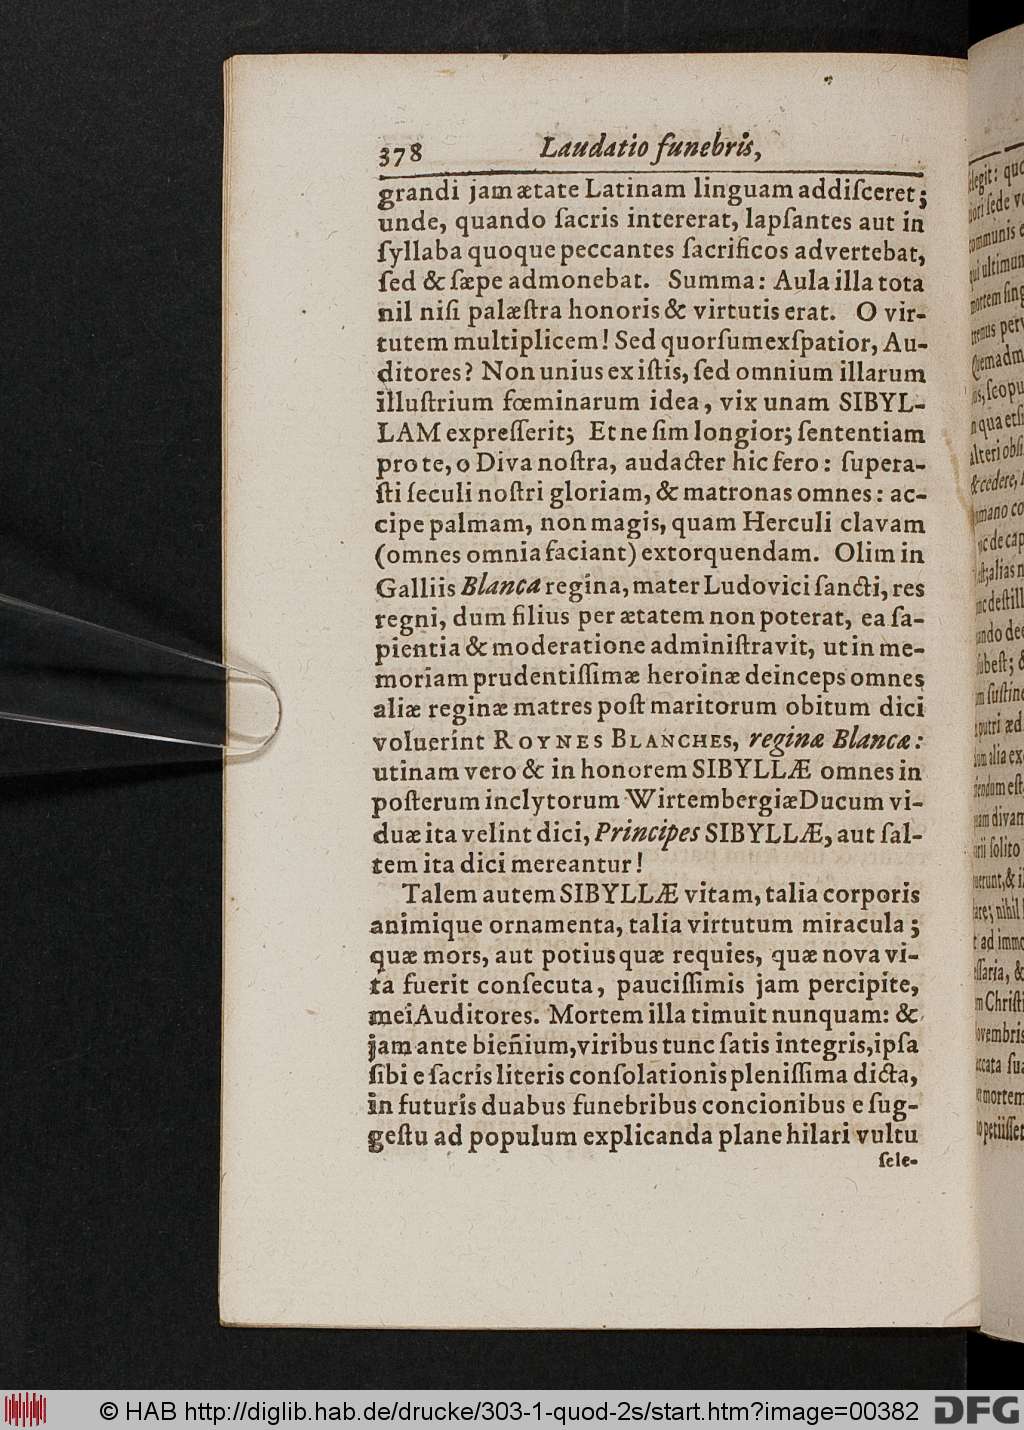 378 Laudatio funebris,
grandi jam ætate Latinam linguam addiſceret;
unde, quando ſacris intererat, lapſantes aut in
ſyllaba quoque peccantes ſacrificos advertebat,
ſed & ſæpe admonebat. Summa: Aula illa tota
nil niſi palæſtra honoris & virtutis erat. O vir-
tutem multiplicem! Sed quorſum exſpatior, Au-
ditores? Non unius ex iſtis, ſed omnium illarum
illuſtrium fœminarum idea, vix unam SIBYL-
LAM expreſſerit; Et ne ſim longior; ſententiam
pro te, o Diva noſtra, audacter hic fero: ſupera-
ſti ſeculi noſtri gloriam, & matronas omnes: ac-
cipe palmam, non magis, quam Herculi clavam
(omnes omnia faciant) extorquendam. Olim in
Galliis Blanca regina, mater Ludovici ſancti, res
regni, dum filius per ætatem non poterat, ea ſa-
pientia & moderatione adminiſtravit, ut in me-
moriam prudentiſſimæ heroinæ deinceps omnes
aliæ reginæ matres poſt maritorum obitum dici
voluerint ROYNES BLANCHES, reginæ Blancæ:
utinam vero & in honorem SIBYLLÆ omnes in
poſterum inclytorum Wirtembergiæ Ducum vi-
duæ ita velint dici, Principes SIBYLLÆ, aut ſal-
tem ita dici mereantur!
Talem autem SIBYLLÆ vitam, talia corporis
animique ornamenta, talia virtutum miracula;
quæ mors, aut potius quæ requies, quæ nova vi-
ta fuerit conſecuta, pauciſſimis jam percipite,
mei Auditores. Mortem illa timuit nunquam: &
jam ante bieñium, viribus tunc ſatis integris, ipſa
ſibi e ſacris literis conſolationis pleniſſima dicta,
in futuris duabus funebribus concionibus e ſug-
geſtu ad populum explicanda plane hilari vultu
ſele-
© HAB http://diglib.hab.de/drucke/303-1-quod-2s/start.htm?image=00382
DFG